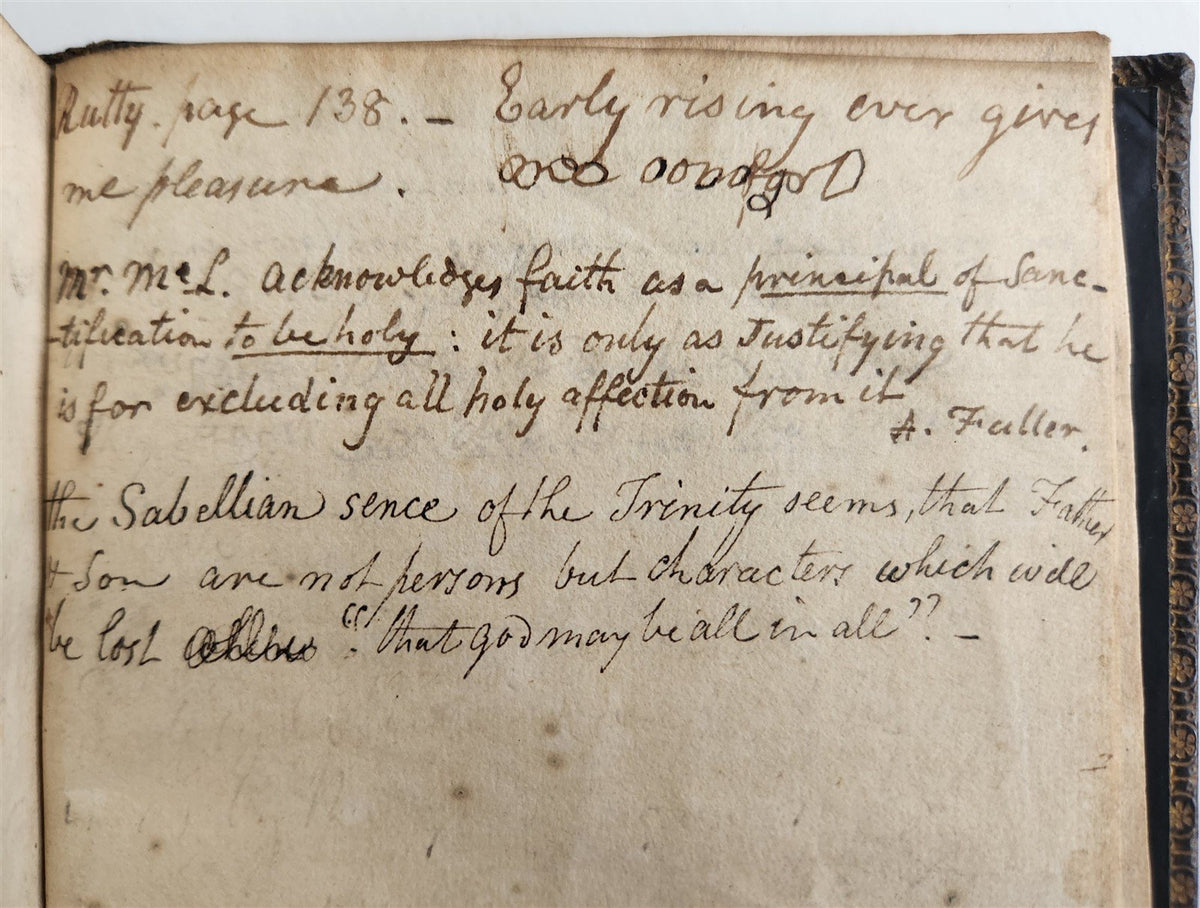 Rutty. page 138. – Early rising ever gives
me pleasure.
Mr. Mc L. acknowledges faith as a principal of Sanc-
-tification to be holy : it is only as Justifying that he
is for excluding all holy affection from it
A. Fuller.
the Sabellian sence of the Trinity seems, that Father
& Son are not persons but characters which will
be lost "that god may be all in all" –